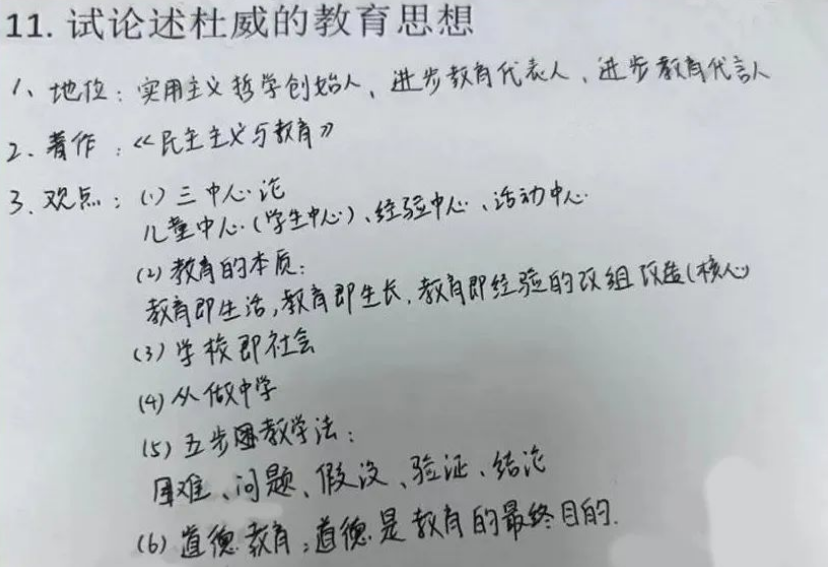 11. 试论述杜威的教育思想
1、地位：实用主义哲学创始人、进步教育代表人、进步教育代言人
2、著作：《民主主义与教育》
3、观点：(1) 三中心论
儿童中心(学生中心)、经验中心、活动中心
(2) 教育的本质：
教育即生活,教育即生长,教育即经验的改组改造(核心)
(3) 学校即社会
(4) 从做中学
(5) 五步教学法：
困难、问题、假设、验证、结论
(6) 道德教育：道德是教育的最终目的.